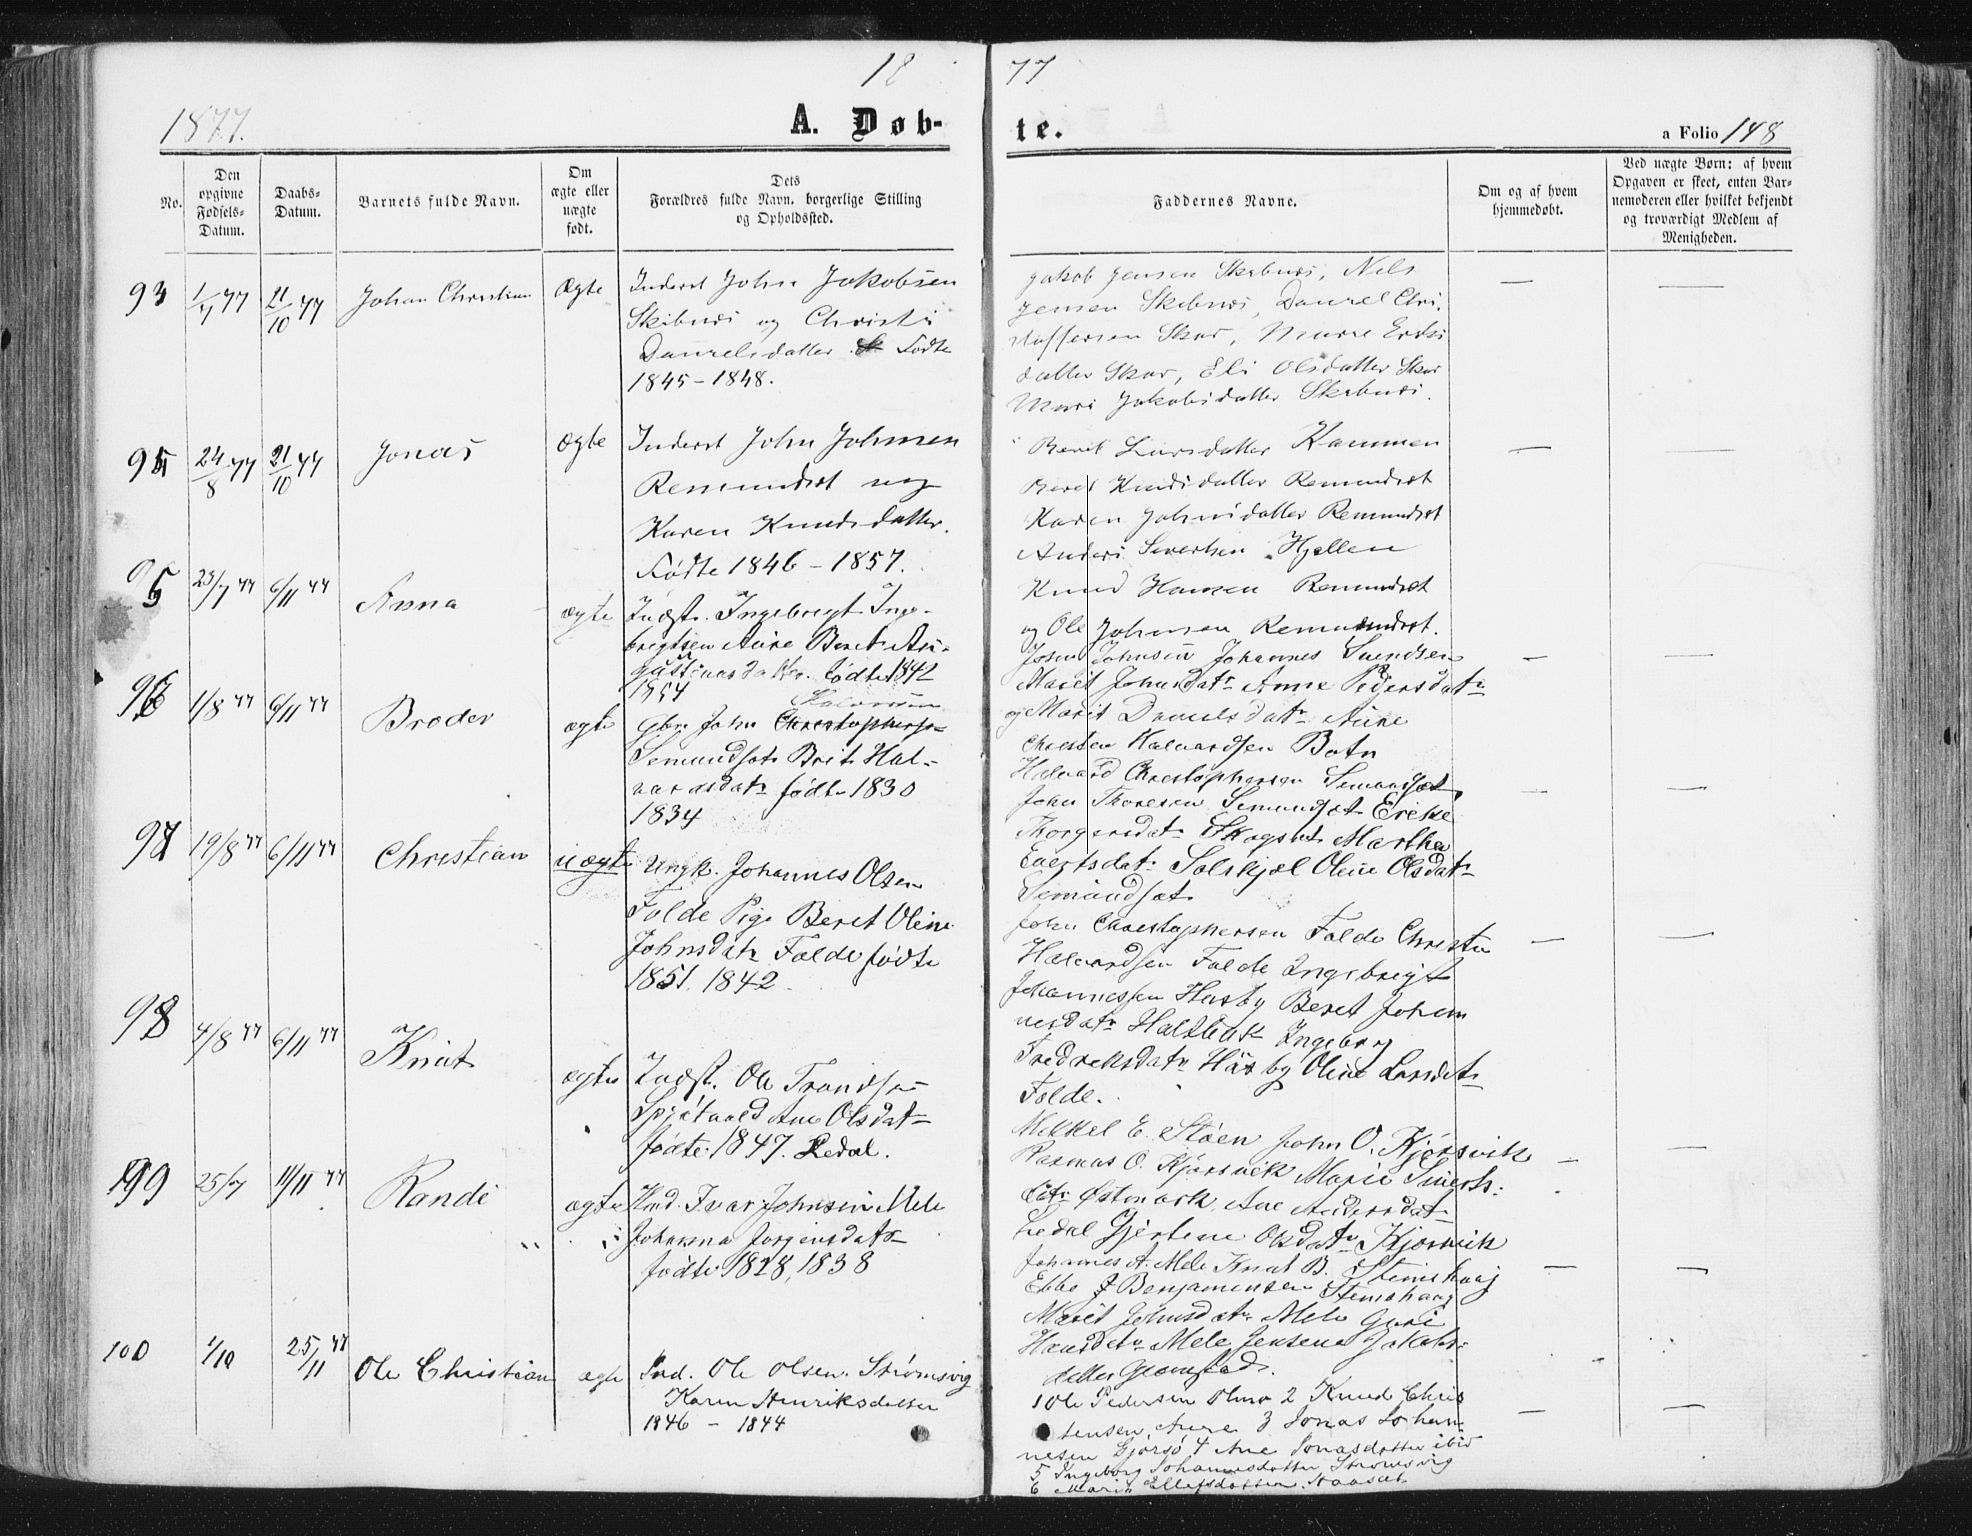 18 77
1877. A. Døb- te. a Folio 148
No.
Den opgivne Fødsels-Datum.
Daabs-Datum.
Barnets fulde Navn.
Om ægte eller uægte født.
Dets Forældres fulde Navn, borgerlige Stilling og Opholdssted.
Faddernes Navne.
Om og af hvem hjemmedøbt.
Ved uægte Børn: af hvem Opgaven er skeet, enten Barnemoderen eller hvilket bekjendt og troværdigt Medlem af Menigheden.
93 1/7 77 21/10 77 Johan Christian Ægte Inderst John Jakobsen
Skibnæs og Christi
Danielsdatter Fødte
1845 - 1848.
Jakob Jensen Skibnæs, Nils
Jensen Skibnæs, Daniel Chri-
stoffersen Skar, Marie Eriks
datter Skar, Eli Olsdatter Skar
Mari Jakobsdatter Skibnæs.
24/8 77 21/10 77 Jonas Ægte Inderst John Johnsen
Remundset og
Karen Knudsdatter.
Fødte 1846 - 1857.
Beret Larsdatter Kammen
Beret Knudsdatter Remundset
Karen Johnsdatter Remundset
Anders Sivertsen Hjellen
Knud Hansen Remundset
og Ole Johnsen Remundset.
23/7 77 6/11 77 Anna ægte Indst. Ingebregt Inge-
brigtsen Aure Beret Au-
gustinusdatter fødte 1842
1854
Johnsen Johannes Svendsen
Marit Johnsdatr Anne Pedersdatr
og Marit Danielsdatr Aure
1/8 77 6/11 77 Broder ægte Gbr. John Christophersen
Semundset Brit Hal-
vardsdatr fødte 1830
1834
Christen Halvardsen Botn
Halvard Christophersen Semundset
John Thoresen Semundset Erike
Thorgersdatr Skogset Martha
Evertsdatr Solskjel Oline Olsdatr
Semundset
97 19/8 77 6/11 77 Christian uægte Ungk. Johannes Olsen
Folde Pige Beret Oline
Johnsdatr Folde fødte
1851. 1842
John Christophersen Folde Christen
Halvardsen Folde Ingebrigt
Johannessen Husby Beret Johan
nesdatr Holsbak Ingeborg
Fredreksdatr Husby Oline Larsdatr
Folde.
98 4/8 77 6/11 77 Knut ægte Indst. Ole Trondsen
Ane Olsdatr
fødte 1847. Ledal.
Mikkel E. Støen John O. Kjørsvik
Rasmus O. Kjørsvik Marie Siverts-
datr Østmark, Ane Andersdatr
Ledal Gjertine Olsdatr Kjørsvik
99 25/7 11/11 77 Randi ægte Ind. Ivar Johnsen Mele
Johanna Jørgensdatr
fødte 1828, 1838
Johannes A. Mele Knut B. Stemshaug
Ebbe J Benjaminsen Stemshaug
Marit Johnsdatr Mele Guri
Hansdatr Mele Jensena Jakobs-
datter
100 4/10 25/11 77 Ole Christian ægte Ind. Ole Olsen Strømsvig
Karen Henriksdatter
1846 - 1844
1 Ole Pedersen 2 Knud Chris
tensen, Aure 3 Jonas Johan-
nesen Gjørsø 4 Ane Jonasdatter ibid
5 Ingeborg Johannesdatter Strømsvig
6 Marie Ellefsdatter